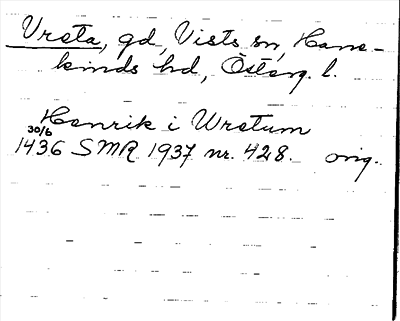 Vreta, gd, Vists sn, Hane-
kinds hd, Österg. l.
Henrik i Wretum
30/6
1436 SMR 1937 nr. 428. orig.